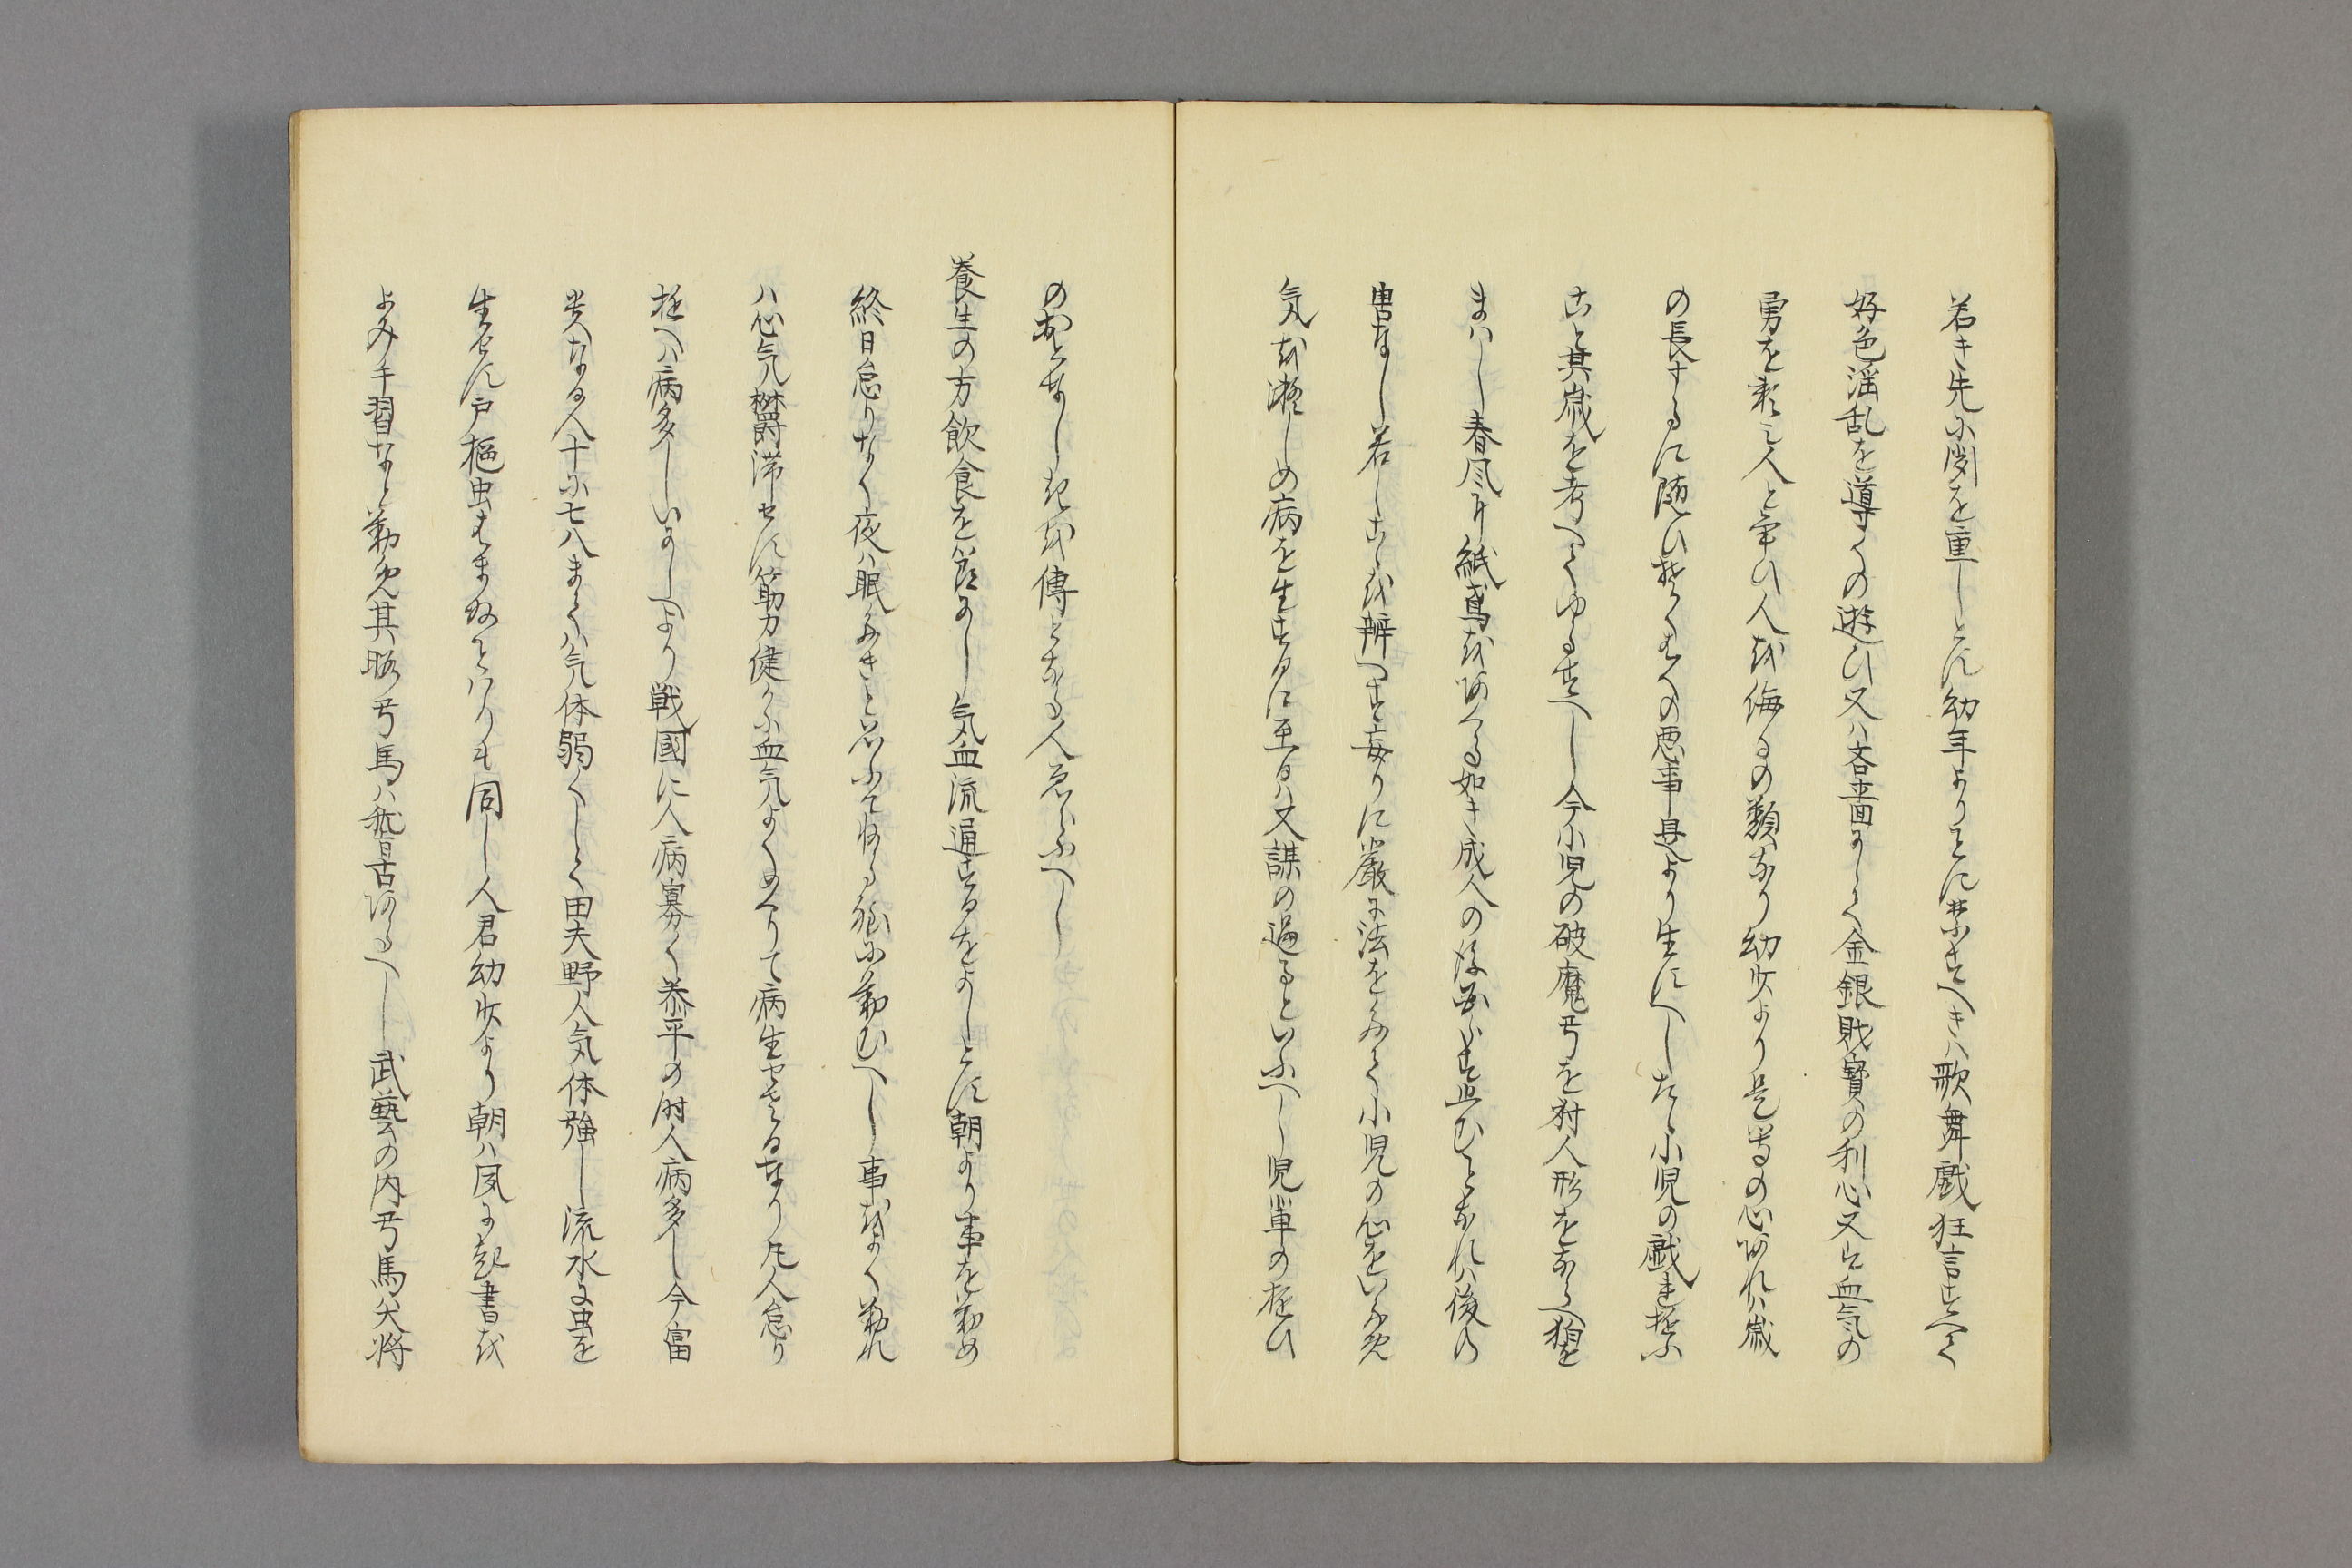 若き先に関を重しとす幼年よりことに禁すへきハ歌舞戯狂言すへて
好色淫乱を導くの遊ひ又ハ吝嗇にして金銀財寳の利心又は血気の
勇を頼ミ人と争ひ人を侮るの類なり幼少より是等の心あれハ歳
の長するに随ひ驚くへきの悪事是より生すへしたゝ小児の戯れ遊ふ
こと其歳を考へてゆるすへし今小児の破魔弓を射人形をならへ独を
まハし春風に紙鳶をあくる如き成人の後必らす止むことなれハ後の
害なし若しこゝを辨へす妄りに厳に法をたてゝ小児の心をいため
気を凝しめ病を生するに至るハ又謀の過るといふへし児輩の遊ひ
のおとなしきを傅となる人思ふへし
養生の方飲食を節にし気血流通するをよしとす朝より事を勤め
終日怠りなく夜ハ眠たきと思ふて臥る程に勤むへし事おほく勤れ
ハ心気欝滞せす筋力健かに血気よくめくりて病生せさるなり凡人怠り
遊へハ病多しいにしへより戦國に人病寡く泰平の時人病多し今富
貴なる人十に七八まてハ気体弱くして田夫野人気体強し流水に虫を
生せす戸樞虫はまぬことハりも同し人君幼少より朝ハ夙に起書を
よみ手習なと勤め其暇弓馬ハ稽古あるへし武藝の内弓馬大将